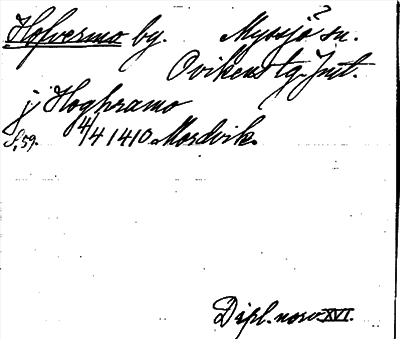 Hofvermo by. Myssjö sn.
Ovikens tg. Jmt.
j Hoghramo
S. 59. 4/4 1410 Mordvik.
Dipl. norv. XVI.